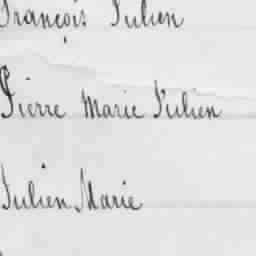 François Julien
Pierre Marie Julien
Julien Marie